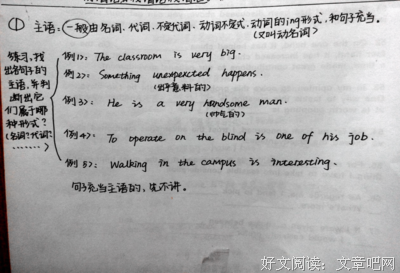 ① 主语:(一般由名词、代词、不定代词、动词不定式、动词的ing形式,和句子充当。
(又叫动名词)
练习,找出各句子的主语,并判断出它们属于哪种形式?(名词?代词?……)
例1): The classroom is very big.
例2): Something unexpected happens.
(出乎意料的)
例3): He is a very handsome man.
(帅气的)
例4): To operate on the blind is one of his job.
例5): Walking in the campus is interesting.
句子充当主语的,先不讲。
好文阅读:文章吧网